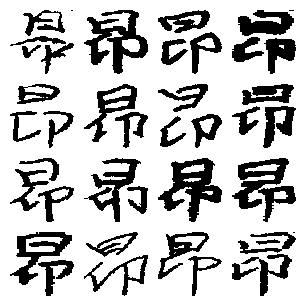 昂昂昂昂
昂昂昂昂
昂昂昂昂
昂昂昂昂